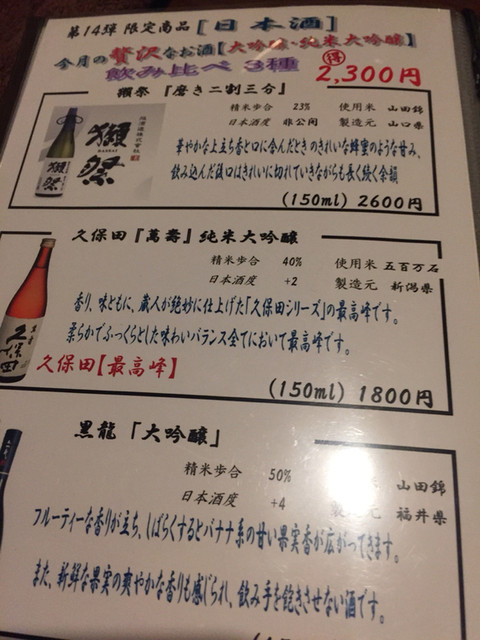 第14弾 限定商品 [日本酒]
今月の贅沢なお酒【大吟醸・純米大吟醸】
飲み比べ 3種 得 2,300円
獺祭 『磨き二割三分』
精米歩合 23% 使用米 山田錦
日本酒度 非公開 製造元 山口県
獺祭
華やかな上立ち香と口に含んだときのきれいな蜂蜜のような甘み。
飲み込んだ後口はきれいに切れていきながらも長く続く余韻
(150ml) 2600円
久保田『萬壽』純米大吟醸
精米歩合 40% 使用米 五百万石
日本酒度 +2 製造元 新潟県
香り、味ともに、蔵人が絶妙に仕上げた「久保田シリーズ」の最高峰です。
柔らかでふっくらとした味わいバランス全てにおいて最高峰です。
久保田【最高峰】
(150ml) 1800円
黒龍「大吟醸」
精米歩合 50% 山田錦
日本酒度 +4 製造元 福井県
フルーティーな香りが立ち、しばらくするとバナナ系の甘い果実香が広がってきます。
また、新鮮な果実の爽やかな香りも感じられ、飲み手を飽きさせない酒です。